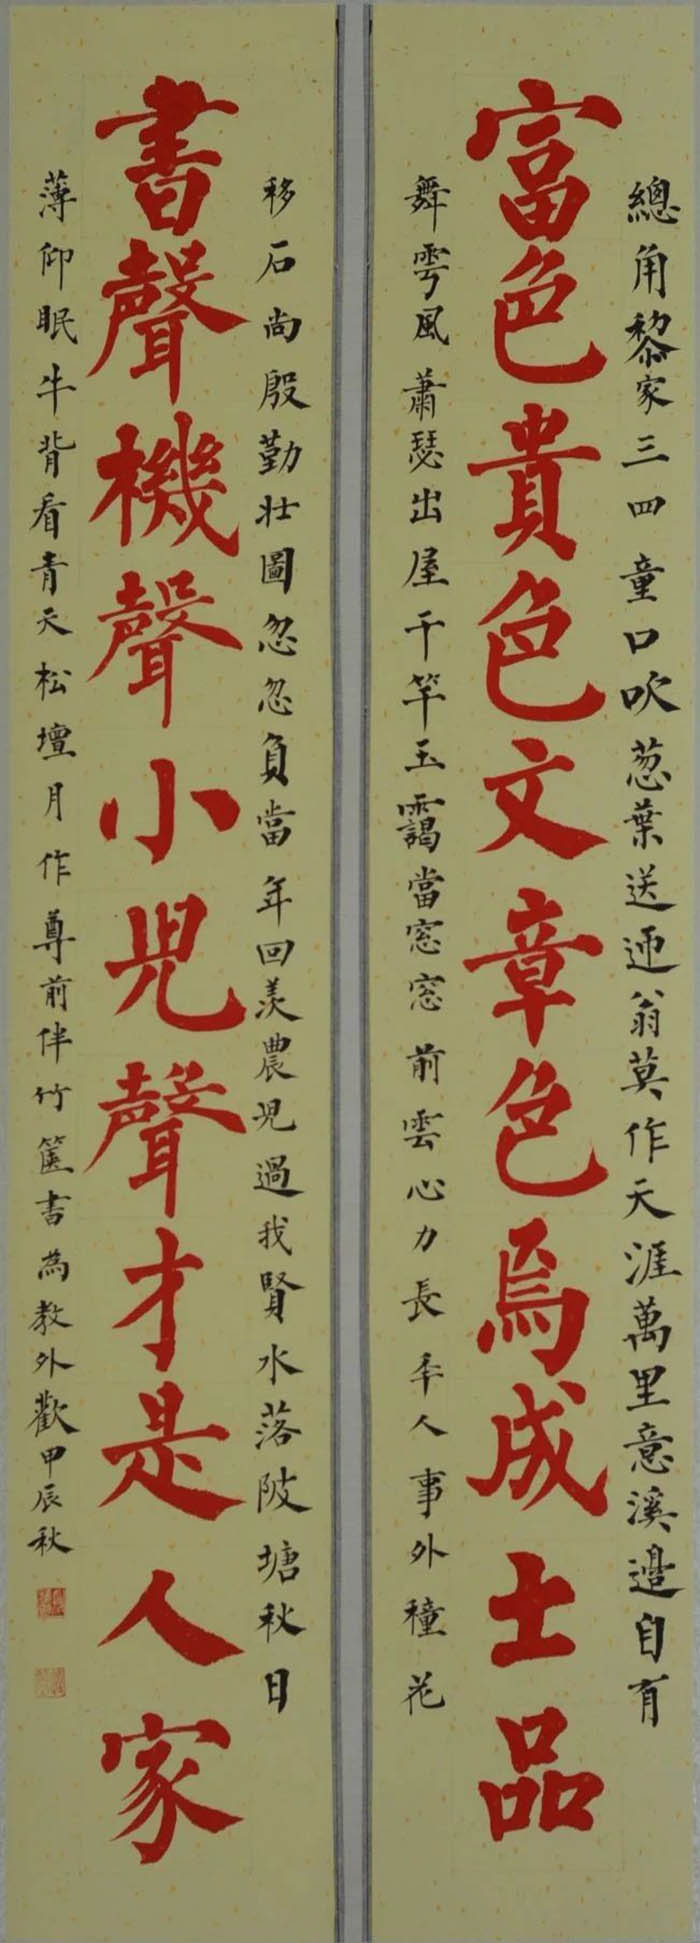 總角黎家三四童口吹葱葉送迎翁莫作天涯萬里意溪邊自有
富色貴色文章色焉成士品
舞雩風蕭瑟出屋千竿玉靄當窓窓前雲心力長年人事外種花
移石尚殷勤壯圖忽忽負當年回羨農児過我賢水落陂塘秋日
書聲機聲小児聲才是人家
薄仰眠牛背看青天松壇月作尊前伴竹篋書為教外歡甲辰秋